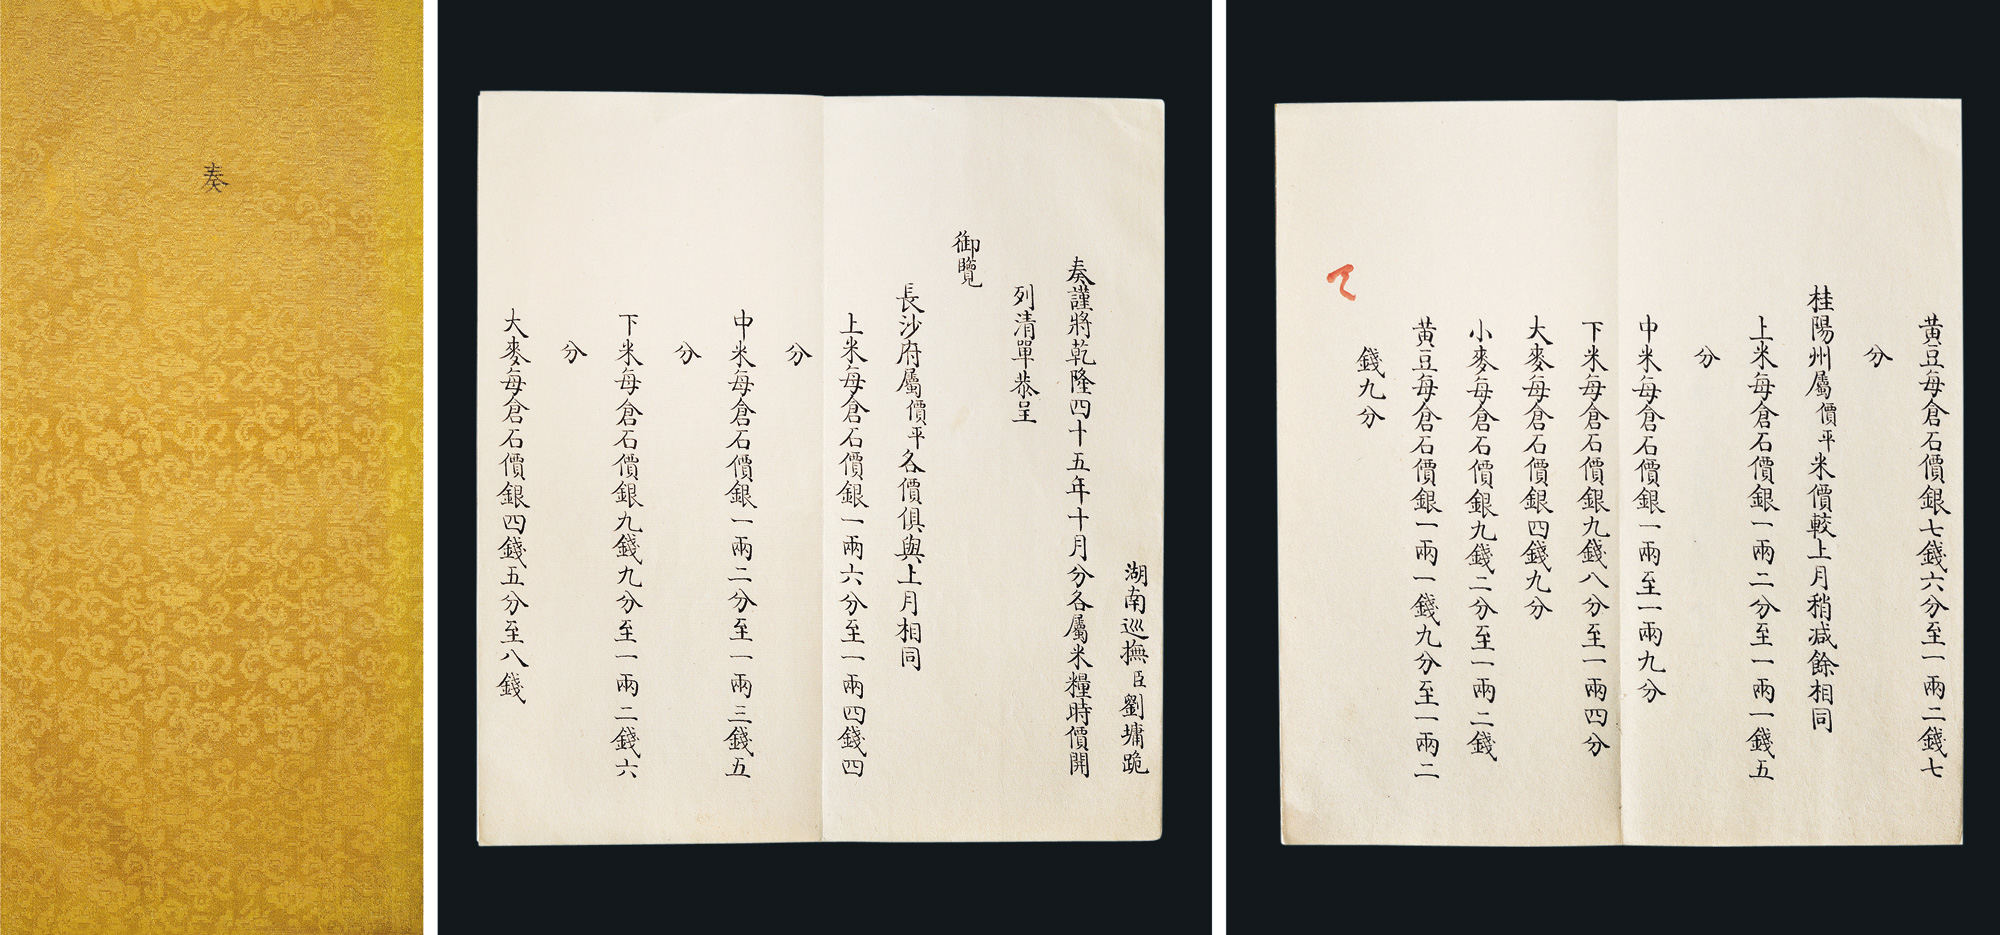 奏
湖南巡撫臣劉墉跪
奏謹將乾隆四十五年十月分各屬米糧時價開
列清單恭呈
御覽
長沙府屬價平各價俱與上月相同
上米每倉石價銀一兩六分至一兩四錢四
分
中米每倉石價銀一兩二分至一兩三錢五
分
下米每倉石價銀九錢九分至一兩二錢六
分
大麥每倉石價銀四錢五分至八錢
黃豆每倉石價銀七錢六分至一兩二錢七
分
桂陽州屬價平米價較上月稍減餘相同
上米每倉石價銀一兩二分至一兩一錢五
分
中米每倉石價銀一兩至一兩九分
下米每倉石價銀九錢八分至一兩四分
大麥每倉石價銀四錢九分
小麥每倉石價銀九錢二分至一兩二錢
黃豆每倉石價銀一兩一錢九分至一兩二
錢九分